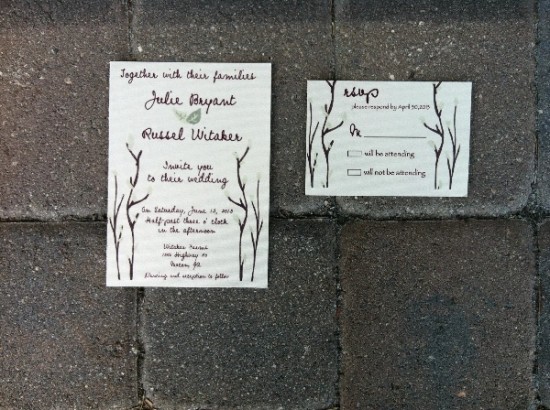 Together with their families
Julie Bryant
Russel Witaker
Invite you
to their wedding
On Saturday, June 15, 2013
Half-past three o' clock
in the afternoon
Witaker Farms
Highway
Dinning and reception to follow
rsvp
please respond by April 30, 2013
M
will be attending
will not be attending